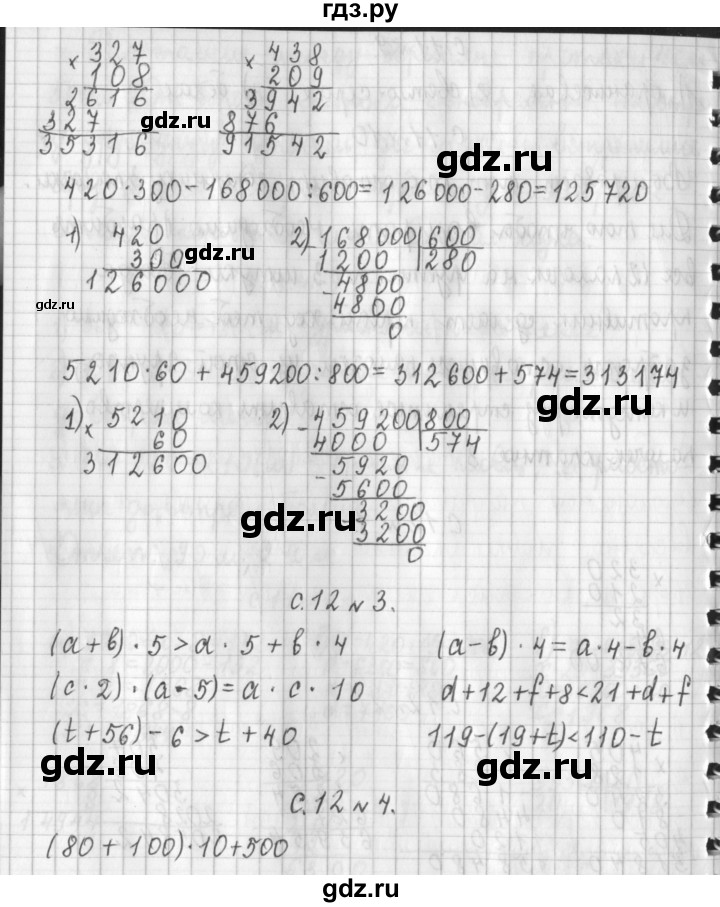 гдз.ру
× 327 × 438
108 209
2616 3942
327 876
35316 91542
gdz.ru
gdz.ru
420·300-168000:600=126000-280=125720
1) 420 2) -168000 600
300 1200 280
126000 -4800
4800
0
gdz.ru
gdz.ru
5210·60+459200:800=312600+574=313174
1) × 5210 2) -459200 800
60 4000 574
312600 -5920
5600
-3200
3200
0
gdz.ru
gdz.ru
gdz.ru
с.12 № 3.
(a+b)·5>a·5+b·4 (a-b)·4=a·4-b·4
(c·2)·(a·5)=a·c·10 d+12+f+8<21+d+f
(t+56)-6>t+40 119-(19+t)<110-t
gdz.ru
gdz.ru
с.12 № 4.
(80+100)·10+500
gdz.ru